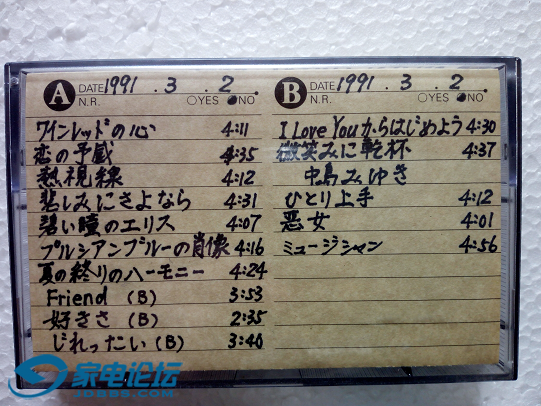 A DATE 1991 . 3 . 2 .
N.R. ○YES ●NO
ワインレッドの心 4:11
恋の予感 4:35
熱視線 4:12
悲しみにさよなら 4:31
碧い瞳のエリス 4:07
プルシアンブルーの肖像 4:16
夏の終りのハーモニー 4:24
Friend (B) 3:53
好きさ (B) 2:35
じれったい (B) 3:40
B DATE 1991 . 3 . 2 .
N.R. ○YES ●NO
I Love Youからはじめよう 4:30
微笑みに乾杯 4:37
中島みゆき
ひとり上手 4:12
悪女 4:01
ミュージシャン 4:56
家电论坛
JDBBS.COM